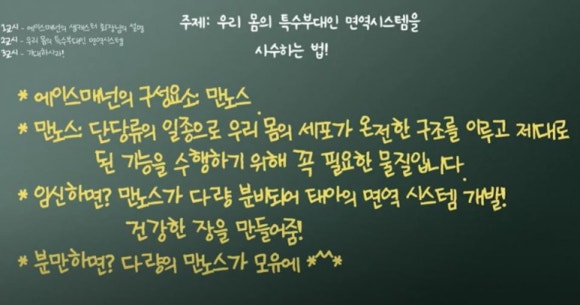 주제: 우리 몸의 특수부대인 면역시스템을
사수하는 법!
1교시 - 에이스매넌의 생캐스터 회장님의 설명
2교시 - 우리 몸의 특수부대인 면역시스템
3교시 - 기대하시라!
* 에이스매넌의 구성요소: 만노스.
* 만노스: 단당류의 일종으로 우리 몸의 세포가 온전한 구조를 이루고 제대로
된 기능을 수행하기 위해 꼭 필요한 물질입니다.
* 임신하면? 만노스가 다량 분비되어 태아의 면역 시스템 개발!
건강한 장을 만들어줌!
* 분만하면? 다량의 만노스가 모유에 *^^*